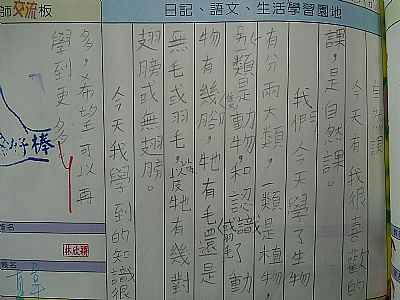 師交流板
日記、語文、生活學習園地
自然課
今天有我很喜歡的
課,是自然課。
我們今天學了生物
有分兩大類,一類是植物,
另一類是動物,和認識了動
物有幾腳,牠有毛還是
無毛或羽毛,以及牠有幾對
翅膀或無翅膀。
今天我學到的知識很
多,希望可以再
學到更多
你好棒
簽名
林欣穎
簽名